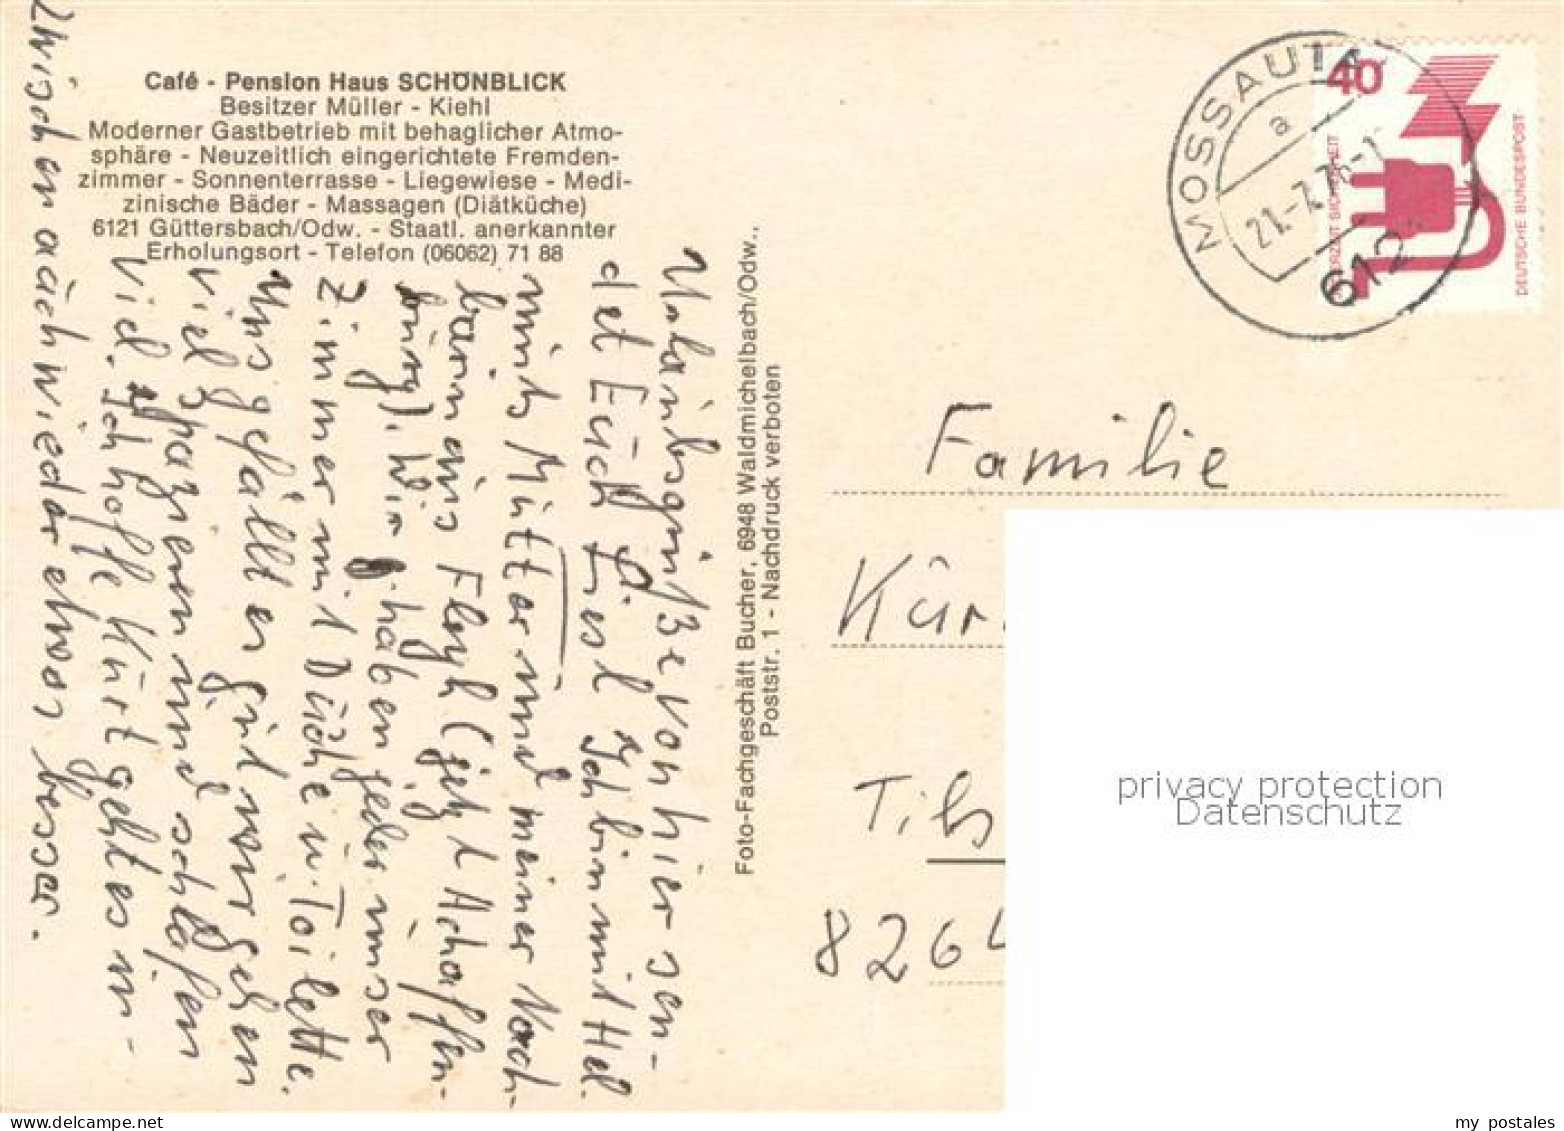 Café - Pension Haus SCHÖNBLICK
Besitzer Müller - Kiehl
Moderner Gastbetrieb mit behaglicher Atmo-
sphäre - Neuzeitlich eingerichtete Fremden-
zimmer - Sonnenterrasse - Liegewiese - Medi-
zinische Bäder - Massagen (Diätküche)
6121 Güttersbach/Odw. - Staatl. anerkannter
Erholungsort - Telefon (06062) 71 88
Urlaubsgrüße von hier sen-
det Euch Liesl Ich bin mit Hel.
mut, Mutter und meiner Nach-
barin aus (jetzt Aschaffen-
burg). Wir haben jeder unser
Zimmer mit Dusche u. Toilette.
Uns gefällt es gut wir gehen
viel spazieren und schlafen
viel. Ich hoffe Kurt geht es in-
zwischen auch wieder etwas besser.
Foto-Fachgeschäft Bucher, 6948 Waldmichelbach/Odw.,
Poststr. 1 - Nachdruck verboten
MOSSAUTAL
a
21.-7.76-1
612
40
JEDERZEIT SICHERHEIT
DEUTSCHE BUNDESPOST
Familie
Kur
8264
privacy protection
Datenschutz
my postales